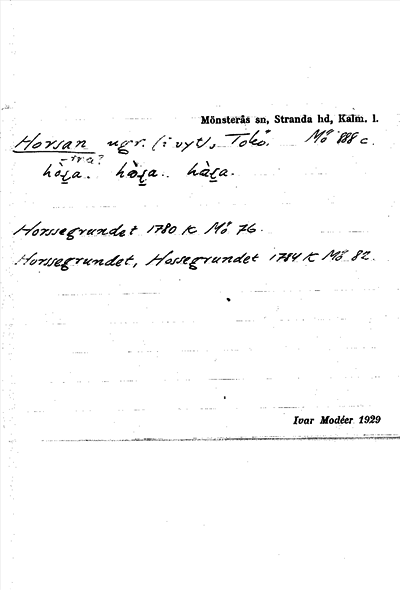 Mönsterås sn, Stranda hd, Kalm. l.
Horsan ugr. (i vyt), Tokö. Mö 888 c.
-tra?
hòs̱a. hòs̱a. hàs̱a.
Horssegrundet 1780 K Mö 76.
Horssegrundet, Hossegrundet 1784 K Mö 82.
Ivar Modéer 1929